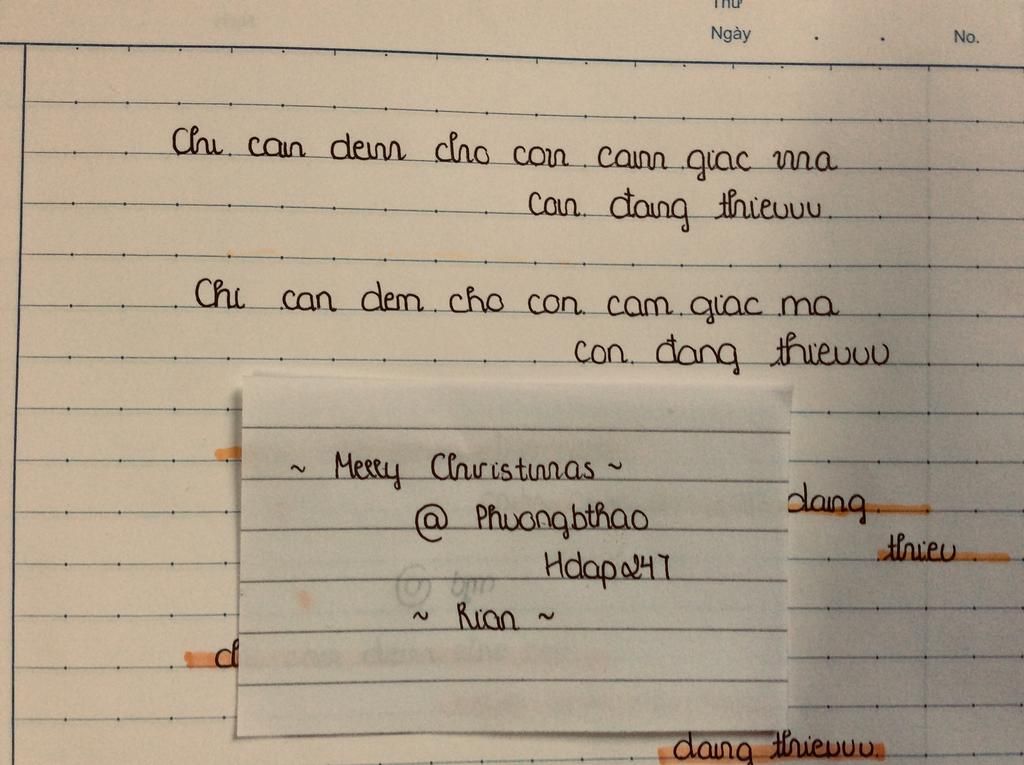 Thứ
Ngày . . No.
Chi can dem cho con cam giac ma
con đang thieuuu
Chi can dem cho con cam giac ma
con đang thieuuu
~ Merry Christmas ~
@ Phuongbthao
Hdap247
~ Rian ~
dang
thieu
d
dang thieuuu